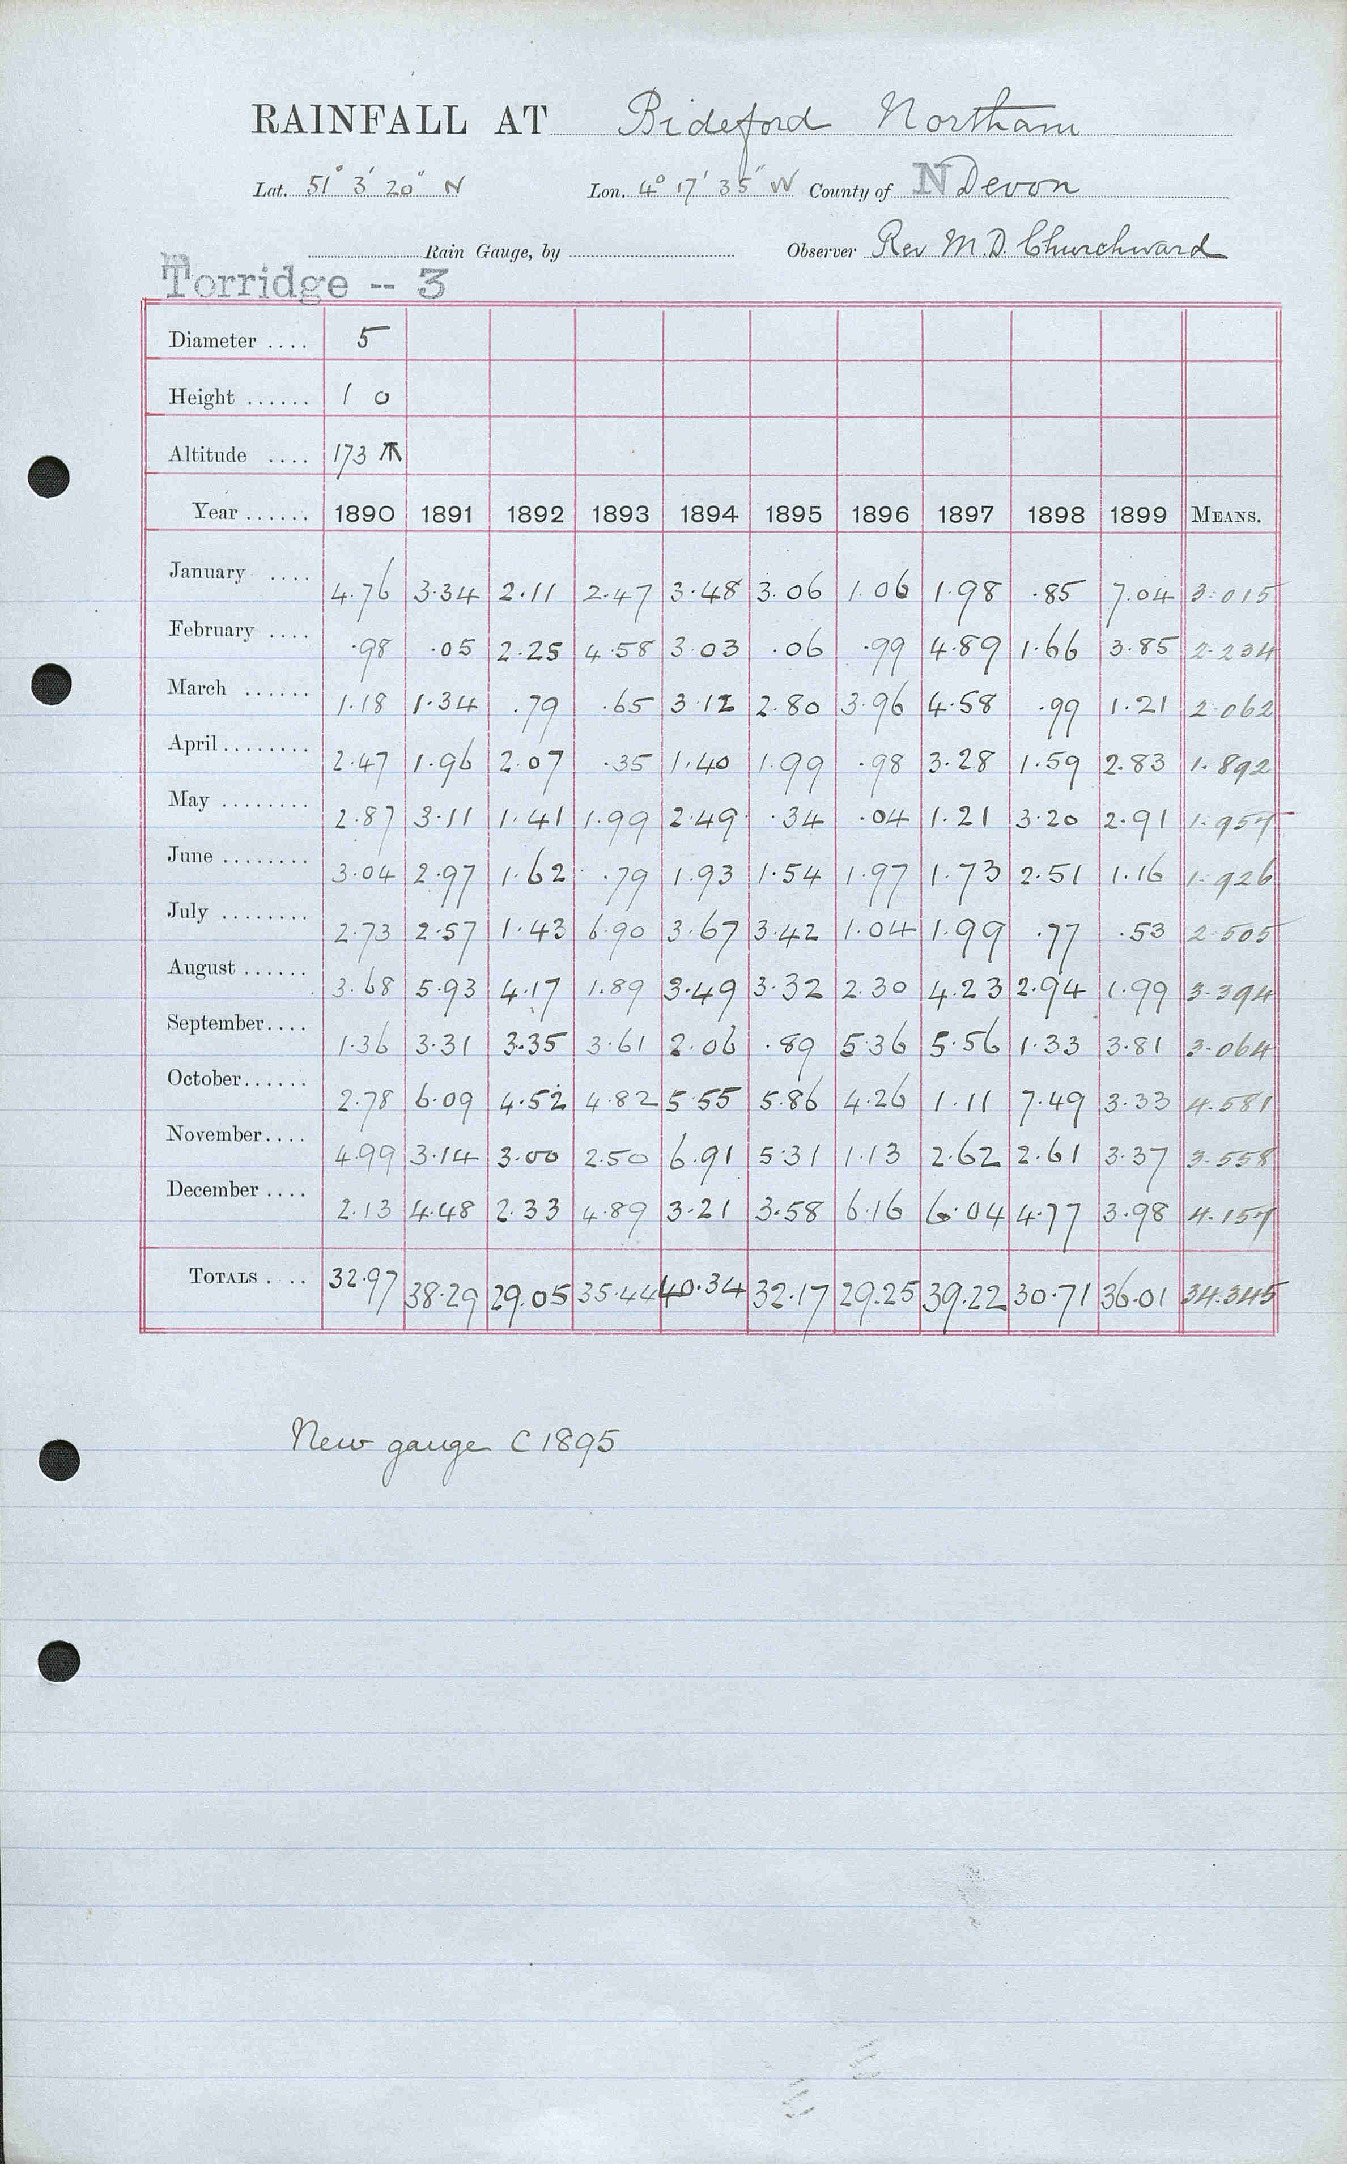 RAINFALL AT Bideford Northam
Lat. 51° 3' 20" N Lon. 4° 17' 35" W County of N Devon
Rain Gauge, by Observer Rev M. D. Churchward
Torridge -- 3
Diameter .... 5
Height ...... 1 0
Altitude .... 173
Year ...... 1890 1891 1892 1893 1894 1895 1896 1897 1898 1899 MEANS.
January .... 4.76 3.34 2.11 2.47 3.48 3.06 1.06 1.98 .85 7.04 3.015
February .... .98 .05 2.25 4.58 3.03 .06 .99 4.89 1.66 3.85 2.234
March ...... 1.18 1.34 .79 .65 3.12 2.80 3.96 4.58 .99 1.21 2.062
April ........ 2.47 1.96 2.07 .35 1.40 1.99 .98 3.28 1.59 2.83 1.892
May ........ 2.87 3.11 1.41 1.99 2.49 .34 .04 1.21 3.20 2.91 1.957
June ........ 3.04 2.97 1.62 .79 1.93 1.54 1.97 1.73 2.51 1.16 1.926
July ........ 2.73 2.57 1.43 6.90 3.67 3.42 1.04 1.99 .77 .53 2.505
August ...... 3.68 5.93 4.17 1.89 3.49 3.32 2.30 4.23 2.94 1.99 3.394
September .... 1.36 3.31 3.35 3.61 2.06 .89 5.36 5.56 1.33 3.81 3.064
October ...... 2.78 6.09 4.52 4.82 5.55 5.86 4.26 1.11 7.49 3.33 4.581
November .... 4.99 3.14 3.00 2.50 6.91 5.31 1.13 2.62 2.61 3.37 3.558
December .... 2.13 4.48 2.33 4.89 3.21 3.58 6.16 6.04 4.77 3.98 4.157
TOTALS .... 32.97 38.29 29.05 35.44 40.34 32.17 29.25 39.22 30.71 36.01 34.345
New gauge C 1895